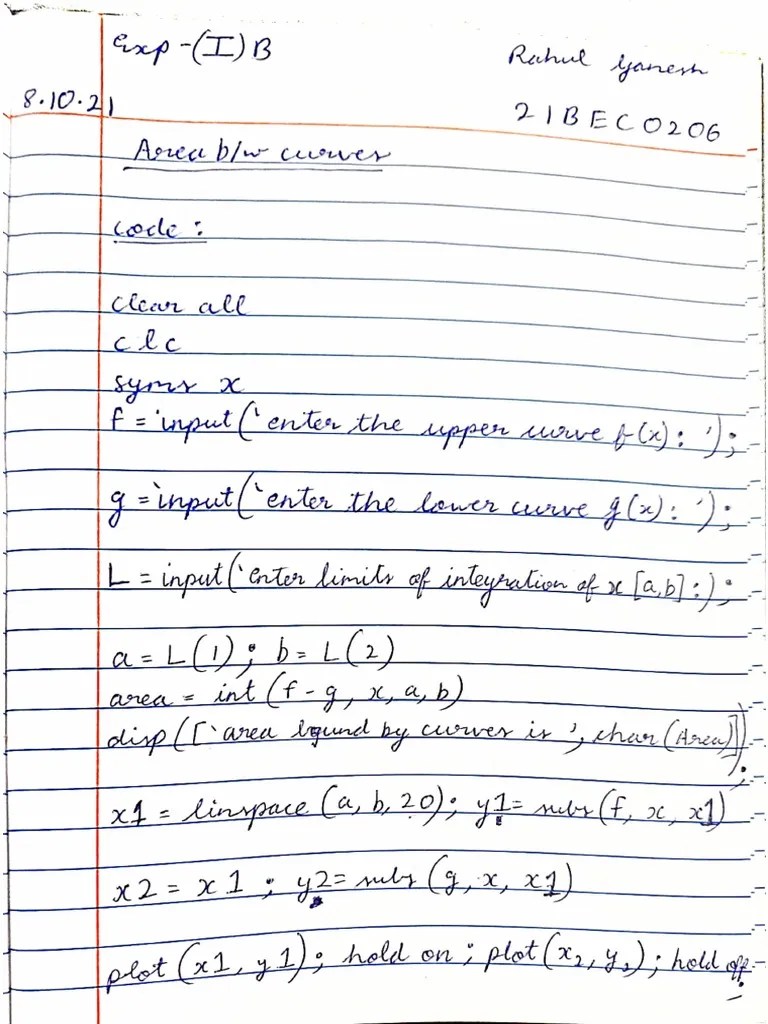 Exp -(I) B
Rahul Ganesh
8.10.21
21BEC0206
Area b/w curves
code :
clear all
clc
syms x
f = input('enter the upper curve f(x): ');
g = input('enter the lower curve g(x): ');
L = input('Enter limits of integration of x [a,b] :);
a = L(1); b = L(2)
area = int (f - g, x, a, b)
disp(['area bound by curves is ', char(Area)]);
x1 = linspace (a, b, 20); y1= subs (f, x, x1)
x2 = x1 ; y2= subs (g, x, x1)
plot (x1, y1); hold on ; plot (x2, y2); hold off;